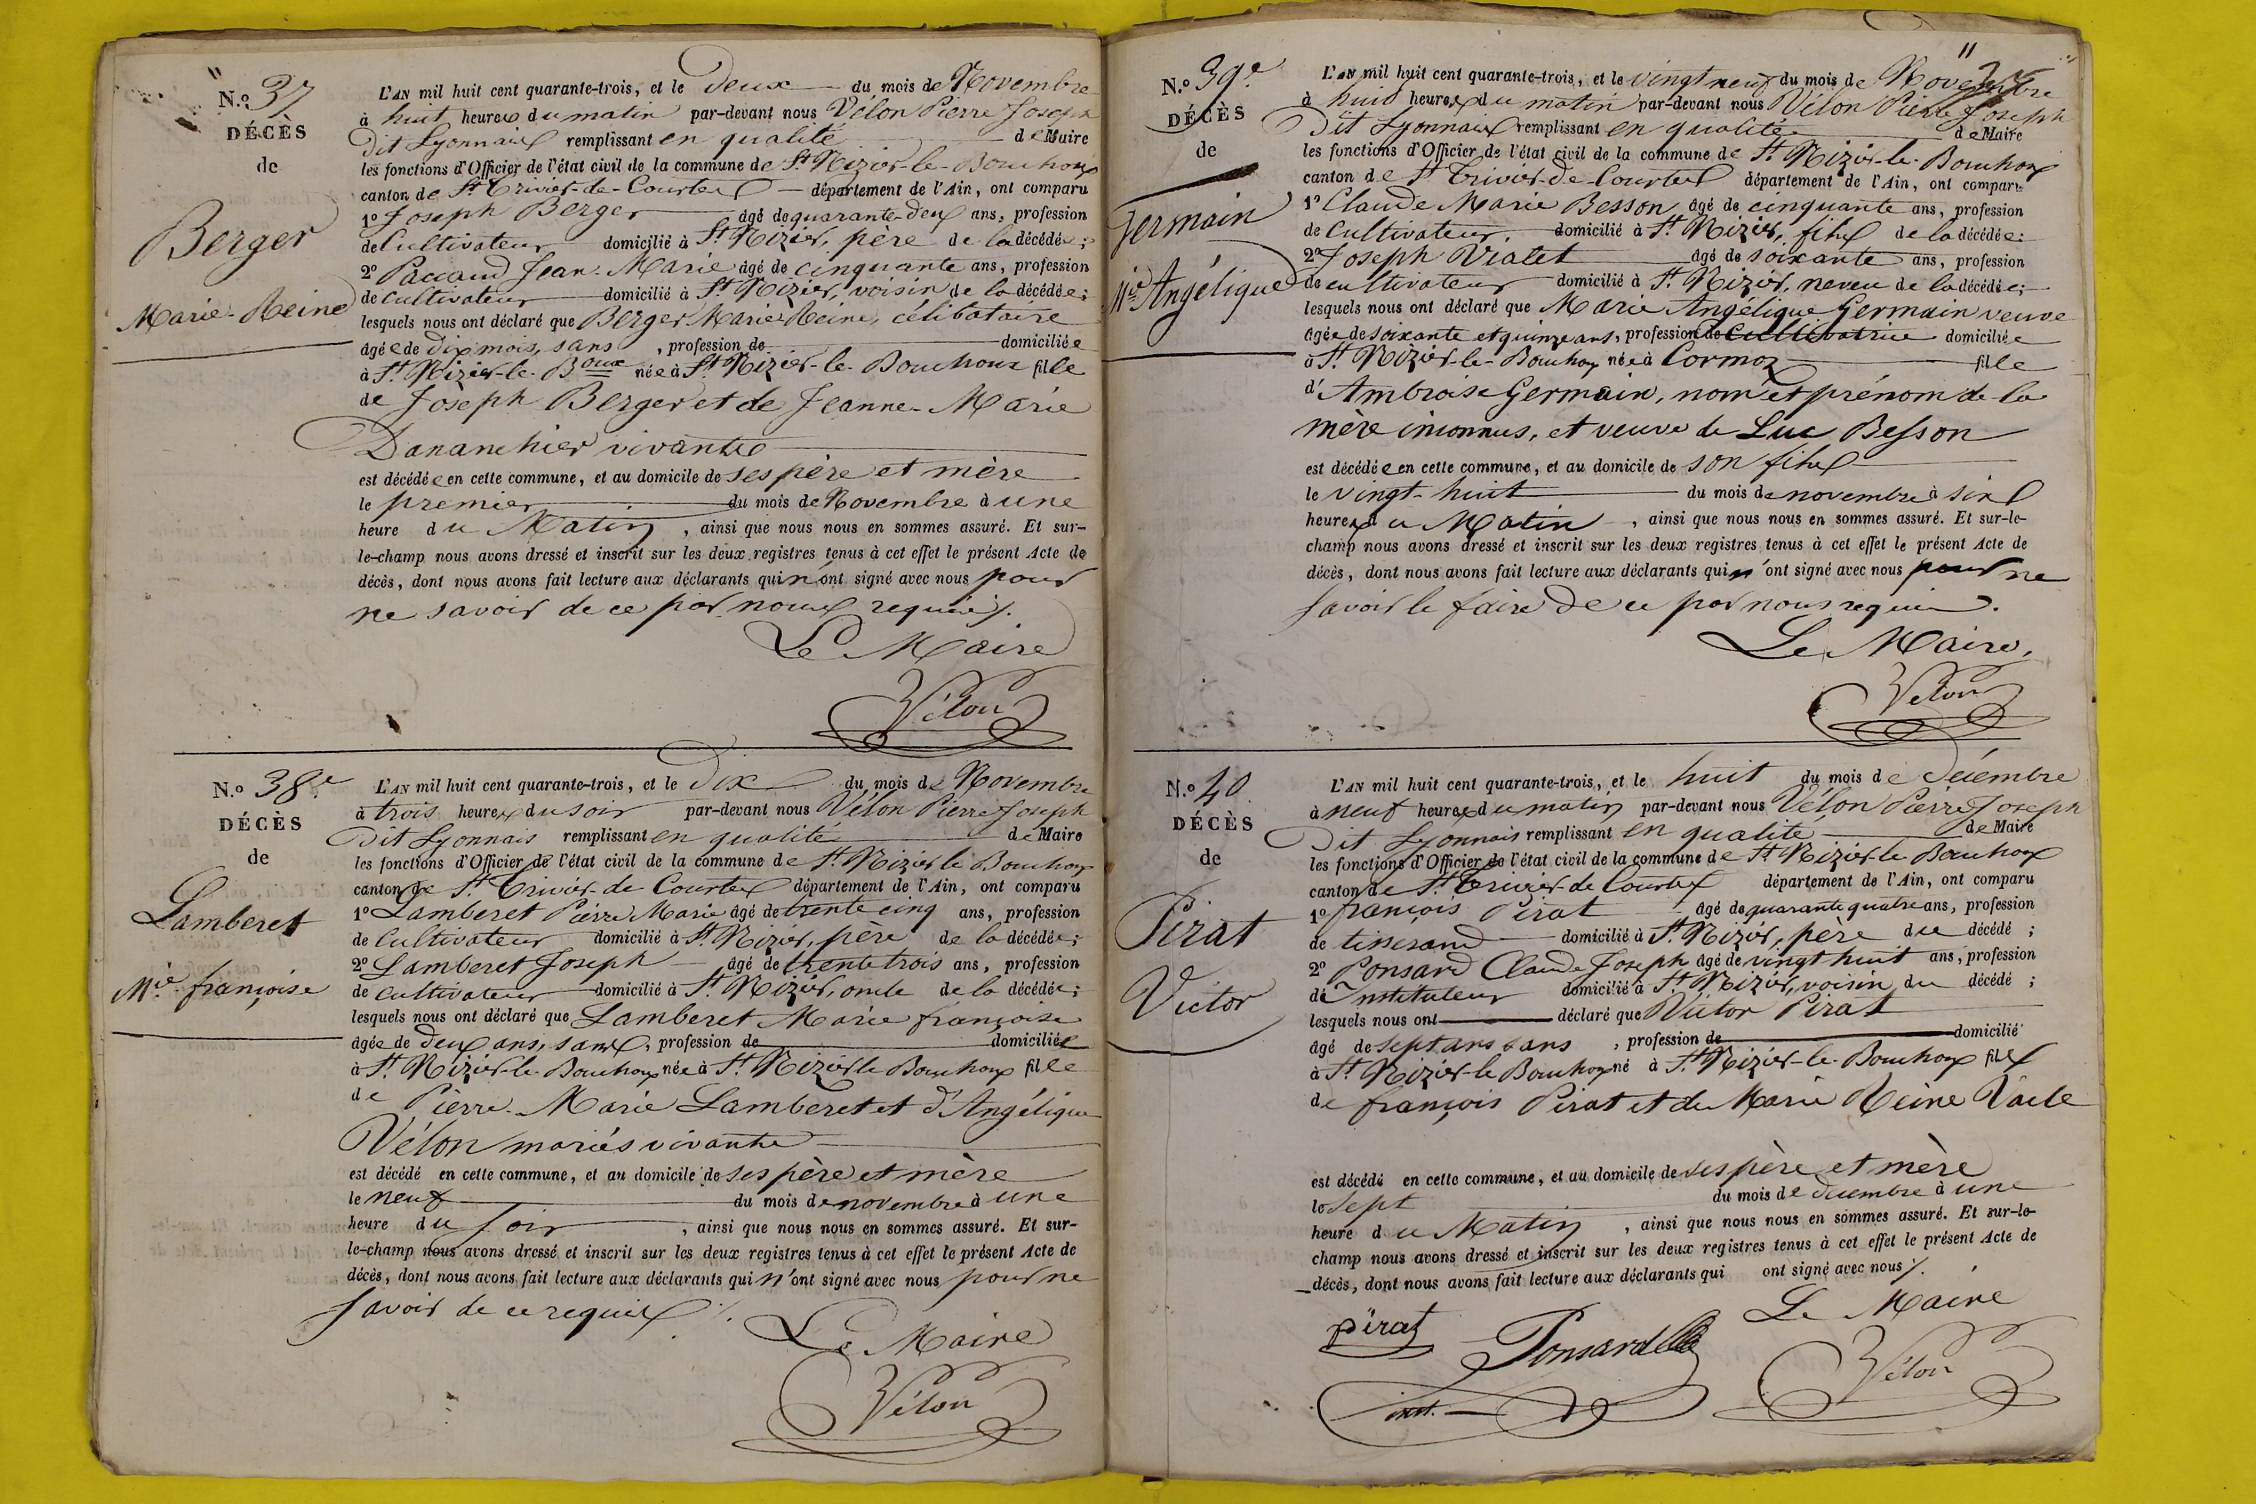 N.o 37
DÉCÈS
de
Berger
Marie-Reine
L'AN mil huit cent quarante-trois, et le deux du mois de Novembre
à huit heures du matin par-devant nous Vélon Pierre Joseph
dit Lyonnais remplissant en qualité de Maire
les fonctions d'Officier de l'état civil de la commune de St. Nizier-le-Bouchoux
canton de St. Trivier-de-Courtes département de l'Ain, ont comparu
1o Joseph Berger âgé de quarante-deux ans, profession
de Cultivateur domicilié à St. Nizier, père de la décédée;
2o Paccaud Jean-Marie âgé de cinquante ans, profession
de cultivateur domicilié à St. Nizier, voisin de la décédée;
lesquels nous ont déclaré que Berger Marie Reine, célibataire
âgée de dix mois, sans , profession de domiciliée
à St. Nizier-le-Boux née à St. Nizier-le-Bouchoux fille
de Joseph Berger et de Jeanne-Marie
Dananchier vivants
est décédée en cette commune, et au domicile de ses père et mère
le premier du mois de Novembre à une
heure du Matin , ainsi que nous nous en sommes assuré. Et sur-
le-champ nous avons dressé et inscrit sur les deux registres tenus à cet effet le présent Acte de
décès, dont nous avons fait lecture aux déclarants qui n'ont signé avec nous pour
ne savoir de ce par nous requis ./.
Le Maire
Vélon
N.o 38e
DÉCÈS
de
Lamberet
Mie françoise
L'AN mil huit cent quarante-trois, et le Dix du mois de Novembre
à trois heures du soir par-devant nous Vélon Pierre Joseph
dit Lyonnais remplissant en qualité de Maire
les fonctions d'Officier de l'état civil de la commune de St. Nizier le Bouchoux
canton de St. Trivier-de Courtes département de l'Ain, ont comparu
1o Lamberet Pierre Marie âgé de trente cinq ans, profession
de Cultivateur domicilié à St. Nizier, père de la décédée;
2o Lamberet Joseph âgé de trente trois ans, profession
de Cultivateur domicilié à St. Nizier, oncle de la décédée;
lesquels nous ont déclaré que Lamberet Marie françoise
âgée de deux ans, sans , profession de domiciliée
à St. Nizier-le-Bouchoux née à St. Nizier le Bouchoux fille
de Pierre-Marie Lamberet et d'Angélique
Vélon mariés vivants
est décédé en cette commune, et au domicile de ses père et mère
le neuf du mois de novembre à une
heure du soir , ainsi que nous nous en sommes assuré. Et sur-
le-champ nous avons dressé et inscrit sur les deux registres tenus à cet effet le présent Acte de
décès, dont nous avons fait lecture aux déclarants qui n'ont signé avec nous pour ne
savoir de ce requis ./.
Le Maire
Vélon
N.o 39e
DÉCÈS
de
Germain
Mie Angélique
L'AN mil huit cent quarante-trois, et le vingt neuf du mois de Novembre
à huit heures du matin par-devant nous Vélon Pierre Joseph
dit Lyonnais remplissant en qualité de Maire
les fonctions d'Officier de l'état civil de la commune de St. Nizier-le-Bouchoux
canton de St Trivier-de-Courtes département de l'Ain, ont comparu
1o Claude Marie Besson âgé de cinquante ans, profession
de Cultivateur, domicilié à St. Nizier, fils de la décédée;
2o Joseph Vialet âgé de soixante ans, profession
de cultivateur domicilié à St. Nizier, neveu de la décédée;
lesquels nous ont déclaré que Marie Angélique Germain veuve
âgée de soixante et quinze ans, profession de Cultivatrice domiciliée
à St. Nizier-le-Bouchoux née à Cormoz fille
d'Ambroise Germain, nom et prénom de la
mère inconnus, et veuve de Luc Besson
est décédée en cette commune, et au domicile de son fils
le vingt-huit du mois de novembre à six
heures du Matin , ainsi que nous nous en sommes assuré. Et sur-le-
champ nous avons dressé et inscrit sur les deux registres tenus à cet effet le présent Acte de
décès, dont nous avons fait lecture aux déclarants qui n'ont signé avec nous pour ne
savoir le faire de ce par nous requis.
Le Maire,
Vélon
N.o 40
DÉCÈS
de
Pirat
Victor
L'AN mil huit cent quarante-trois, et le huit du mois de Décembre
à neuf heures du matin par-devant nous Vélon Pierre Joseph
dit Lyonnais remplissant en qualité de Maire
les fonctions d'Officier de l'état civil de la commune de St. Nizier-le Bouchoux
canton de St. Trivier-de Courtes département de l'Ain, ont comparu
1o françois Pirat âgé de quarante quatre ans, profession
de tisserand domicilié à St. Nizier, père du décédé ;
2o Ponsard Claude Joseph âgé de vingt huit ans, profession
de Instituteur domicilié à St. Nizier, voisin du décédé ;
lesquels nous ont déclaré que Victor Pirat
âgé de sept ans sans , profession de domicilié
à St Nizier-le Bouchoux né à St. Nizier-le-Bouchoux fils
de françois Pirat et de Marie Reine Vaile
est décédé en cette commune, et au domicile de ses père et mère
le sept du mois de décembre à une
heure du Matin , ainsi que nous nous en sommes assuré. Et sur-le-
champ nous avons dressé et inscrit sur les deux registres tenus à cet effet le présent Acte de
décès, dont nous avons fait lecture aux déclarants qui ont signé avec nous ./.
Le Maire
pirat
Ponsard
inst.
Vélon